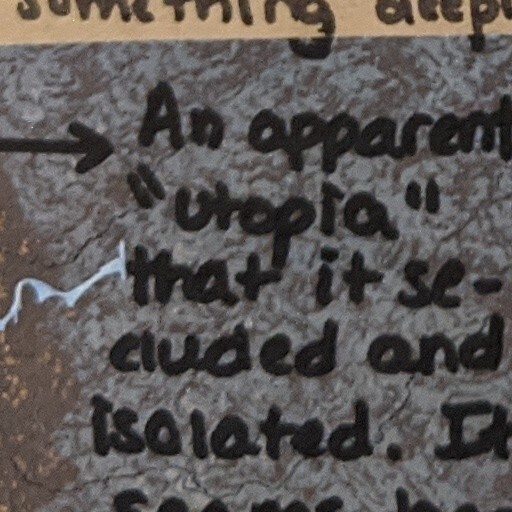 something deep
An apparent
"utopia"
that it se-
cluded and
isolated. It
seems